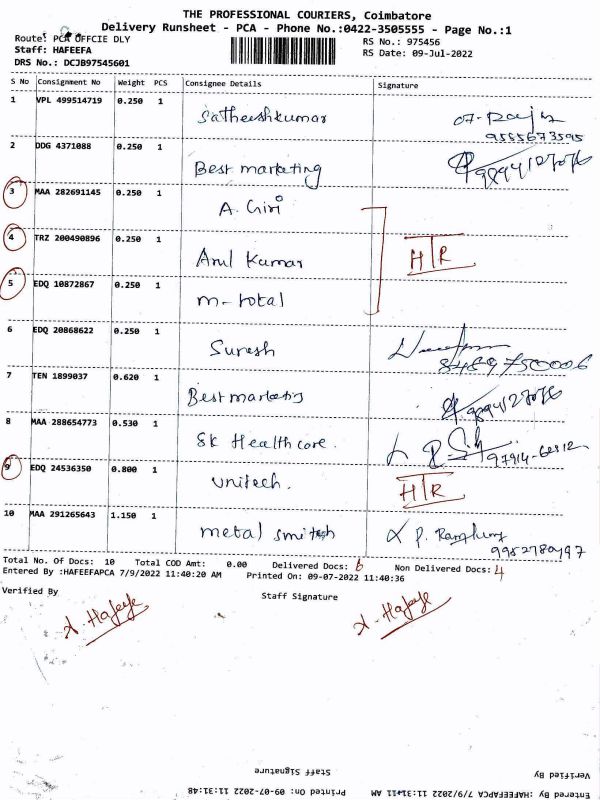 THE PROFESSIONAL COURIERS, Coimbatore
Delivery Runsheet - PCA - Phone No.:0422-3505555 - Page No.:1
Route: PCA OFFCIE DLY
RS No.: 975456
Staff: HAFEEFA
RS Date: 09-Jul-2022
DRS No.: DCJB97545601
S No Consignment No Weight PCS Consignee Details Signature
1 VPL 499514719 0.250 1 Satheeshkumar
9585673595
2 DDG 4371088 0.250 1 Best marketing 9894127076
3 MAA 282691145 0.250 1 A. Giri
4 TRZ 200490896 0.250 1 Arul Kumar HTR
5 EDQ 10872867 0.250 1 m-total
6 EDQ 20868622 0.250 1 Suresh
8489750006
7 TEN 1899037 0.620 1 Best marketing 9894127076
8 MAA 288654773 0.530 1 SK Healthcare.
9 EDQ 24536350 0.800 1 Unitech. HTR
10 MAA 291265643 1.150 1 metal smitesh
9952780497
Total No. Of Docs: 10 Total COD Amt: 0.00 Delivered Docs: 6 Non Delivered Docs: 4
Entered By :HAFEEFAPCA 7/9/2022 11:40:20 AM Printed On: 09-07-2022 11:40:36
Verified By Staff Signature
Verified By Staff Signature
Entered By :HAFEEFAPCA 7/9/2022 11:31:11 AM Printed On: 09-07-2022 11:31:48